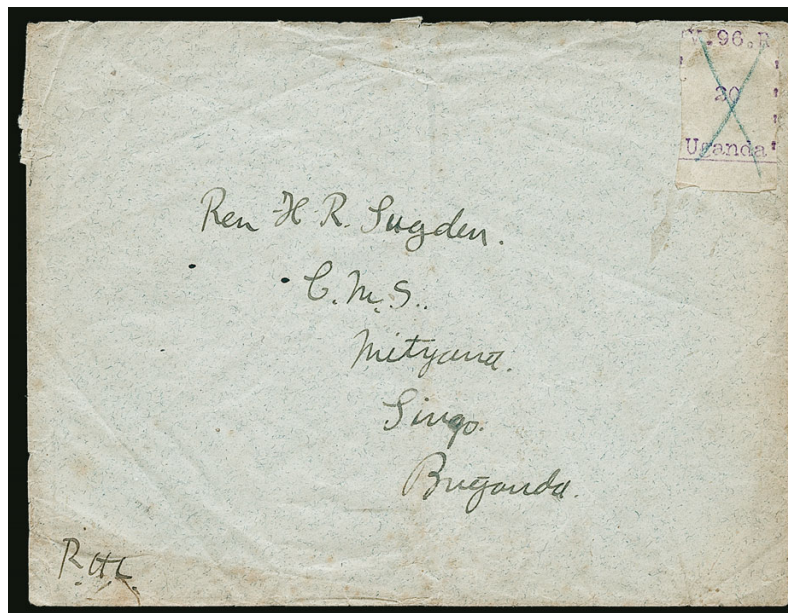 V.96.R
20
Uganda
Rev H R. Sugden.
C.M.S..
Mityana.
Singo.
Buganda.
R.H.L.